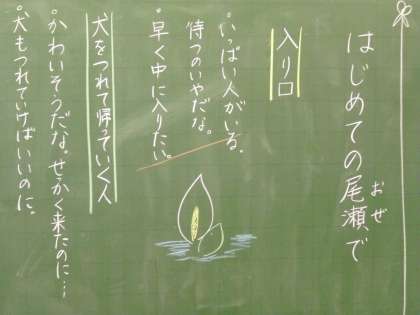 はじめての尾瀬で
おぜ
入り口
・いっぱい人がいる。
待つのいやだな。
・早く中に入りたい。
犬をつれて帰っていく人
・かわいそうだな。せっかく来たのに…
・犬もつれていけばいいのに。